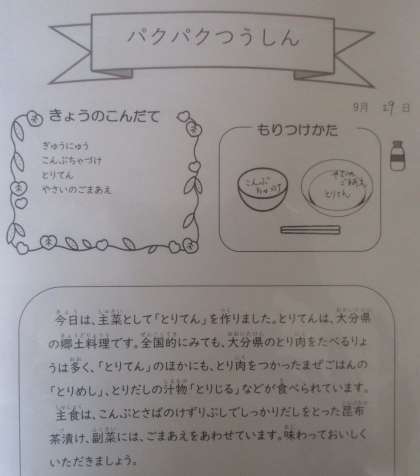 パクパクつうしん
9月 29日
きょうのこんだて
ぎゅうにゅう
こんぶちゃづけ
とりてん
やさいのごまあえ
もりつけかた
こんぶ
ちゃづけ
やさいの
ごまあえ
とりてん
今日は、主菜として「とりてん」を作りました。とりてんは、大分県
の郷土料理です。全国的にみても、大分県のとり肉をたべるりょ
うは多く、「とりてん」のほかにも、とり肉をつかったまぜごはんの
「とりめし」、とりだしの汁物「とりじる」などが食べられています。
主食は、こんぶとさばのけずりぶしでしっかりだしをとった昆布
茶漬け、副菜には、ごまあえをあわせています。味わっておいしく
いただきましょう。